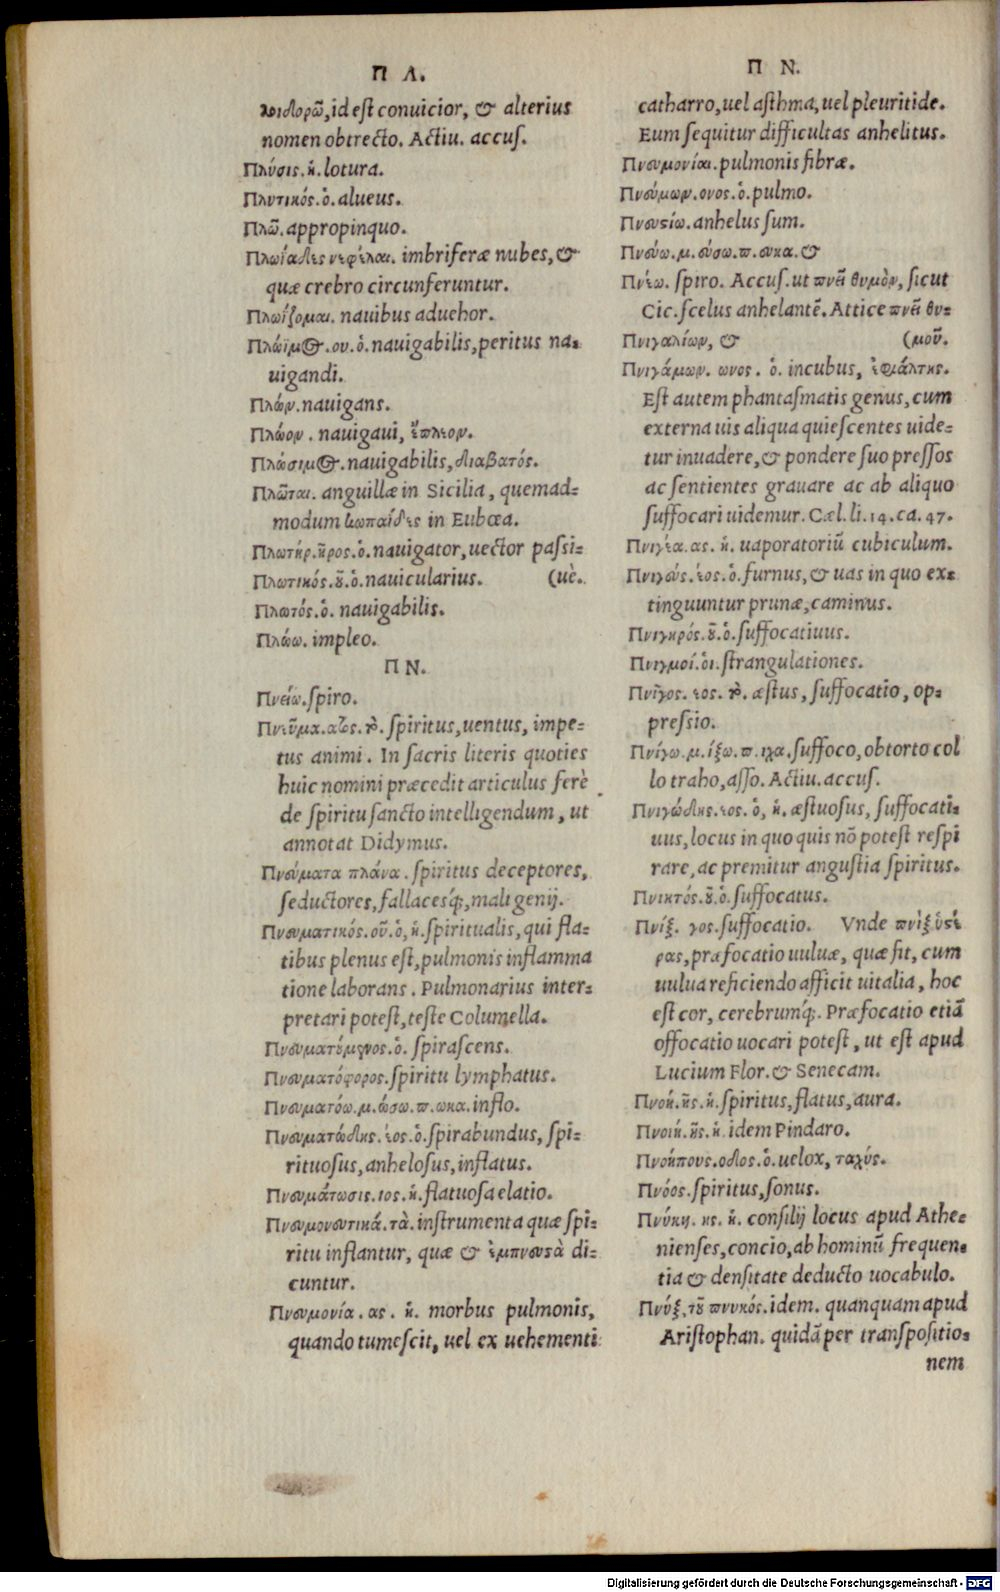 Π Λ.
λοιδορῶ, id est conuicior, & alterius
nomen obtrecto. Actiu. accus.
Πλύσις. ἡ. lotura.
Πλυτικός. ὁ. alueus.
Πλῶ. appropinquo.
Πλωϊάδες νεφέλαι. imbriferæ nubes, &
quæ crebro circunferuntur.
Πλωΐζομαι. nauibus aduehor.
Πλώϊμος. ου. ὁ. nauigabilis, peritus na=
uigandi.
Πλών. nauigans.
Πλώον. nauigaui, ἔπλεον.
Πλώσιμος. nauigabilis, διαβατός.
Πλῶται. anguillæ in Sicilia, quemad=
modum κωπαίδες in Eubœa.
Πλωτήρ. ῆρος. ὁ. nauigator, uector passi=
Πλωτικός. οῦ. ὁ. nauicularius. (uè.
Πλωτός. ὁ. nauigabilis.
Πλώω. impleo.
Π Ν.
Πνείω. spiro.
Πνεῦμα. ατος. τό. spiritus, uentus, impe=
tus animi. In sacris literis quoties
huic nomini præcedit articulus ferè
de spiritu sancto intelligendum, ut
annotat Didymus.
Πνεύματα πλάνα. spiritus deceptores,
seductores, fallacesq́;, mali genij.
Πνευματικός. οῦ. ὁ, ἡ. spiritualis, qui fla=
tibus plenus est, pulmonis inflamma
tione laborans. Pulmonarius inter=
pretari potest, teste Columella.
Πνευματούμενος. ὁ. spirascens.
Πνευματόφορος. spiritu lymphatus.
Πνευματόω. μ. ώσω. π. ωκα. inflo.
Πνευματώδης. έος. ὁ. spirabundus, spi=
rituosus, anhelosus, inflatus.
Πνευμάτωσις. ιος. ἡ. flatuosa elatio.
Πνευμονευτικά. τὰ. instrumenta quæ spi=
ritu inflantur, quæ & ἐμπνευστὰ di=
cuntur.
Πνευμονία. ας. ἡ. morbus pulmonis,
quando tumescit, uel ex uehementi
Π Ν.
catharro, uel asthma, uel pleuritide.
Eum sequitur difficultas anhelitus.
Πνευμονίαι. pulmonis fibræ.
Πνεύμων. ονος. ὁ. pulmo.
Πνευστίω. anhelus sum.
Πνεύω. μ. εύσω. π. ευκα. &
Πνέω. spiro. Accus. ut πνεῖ θυμὸν, sicut
Cic. scelus anhelantẽ. Attice πνεῖ θυ=
Πνιγαλίων, & (μοῦ.
Πνιγάμων. ωνος. ὁ. incubus, ἐφιάλτης.
Est autem phantasmatis genus, cum
externa uis aliqua quiescentes uide=
tur inuadere, & pondere suo pressos
ac sentientes grauare ac ab aliquo
suffocari uidemur. Cæl. li. 14. ca. 47.
Πνιγέα. ας. ἡ. uaporatoriũ cubiculum.
Πνιγεύς. έος. ὁ. furnus, & uas in quo ex=
tinguuntur prunæ, caminus.
Πνιγηρός. οῦ. ὁ. suffocatiuus.
Πνιγμοί. οἱ. strangulationes.
Πνῖγος. εος. τό. æstus, suffocatio, op=
pressio.
Πνίγω. μ. ίξω. π. ιχα. suffoco, obtorto col
lo traho, asso. Actiu. accus.
Πνιγώδης. εος. ὁ, ἡ. æstuosus, suffocati=
uus, locus in quo quis nõ potest respi
rare, ac premitur angustia spiritus.
Πνικτός. οῦ. ὁ. suffocatus.
Πνίξ. γος. suffocatio. Vnde πνὶξ ὑστέ
ρας, præfocatio uuluæ, quæ fit, cum
uulua reficiendo afficit uitalia, hoc
est cor, cerebrumq́;. Præfocatio etiã
offocatio uocari potest, ut est apud
Lucium Flor. & Senecam.
Πνοή. ῆς. ἡ. spiritus, flatus, aura.
Πνοιή. ῆς. ἡ. idem Pindaro.
Πνοήπους. οδος. ὁ. uelox, ταχύς.
Πνόος. spiritus, sonus.
Πνύκη. ης. ἡ. consilij locus apud Athe=
nienses, concio, ab hominũ frequen=
tia & densitate deducto uocabulo.
Πνύξ, τοῦ πνυκός. idem. quanquam apud
Aristophan. quidã per transpositio=
nem
Digitalisierung gefördert durch die Deutsche Forschungsgemeinschaft - DFG